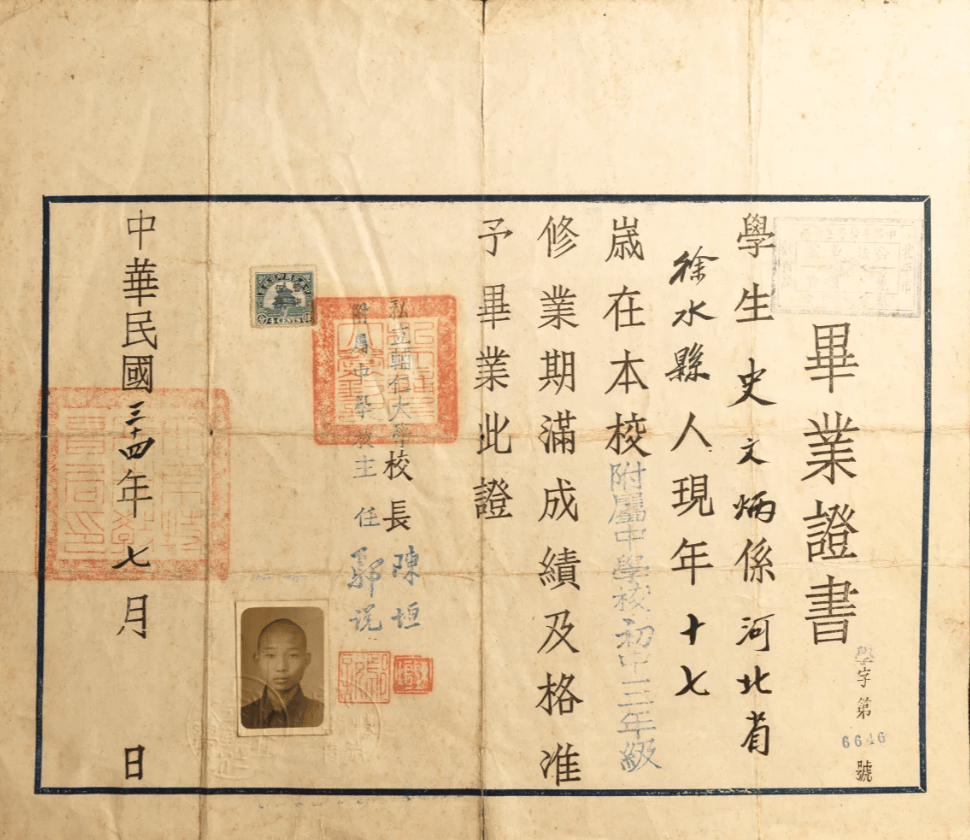 畢業證書
學字第6646號
學生史文炳係河北省
徐水縣人現年十七
歲在本校附屬中學校初中三年級
修業期滿成績及格准
予畢業此證
私立輔仁大學校長陳垣
附屬中學校主任
中華民國三十四年七月 日
4 CENTS